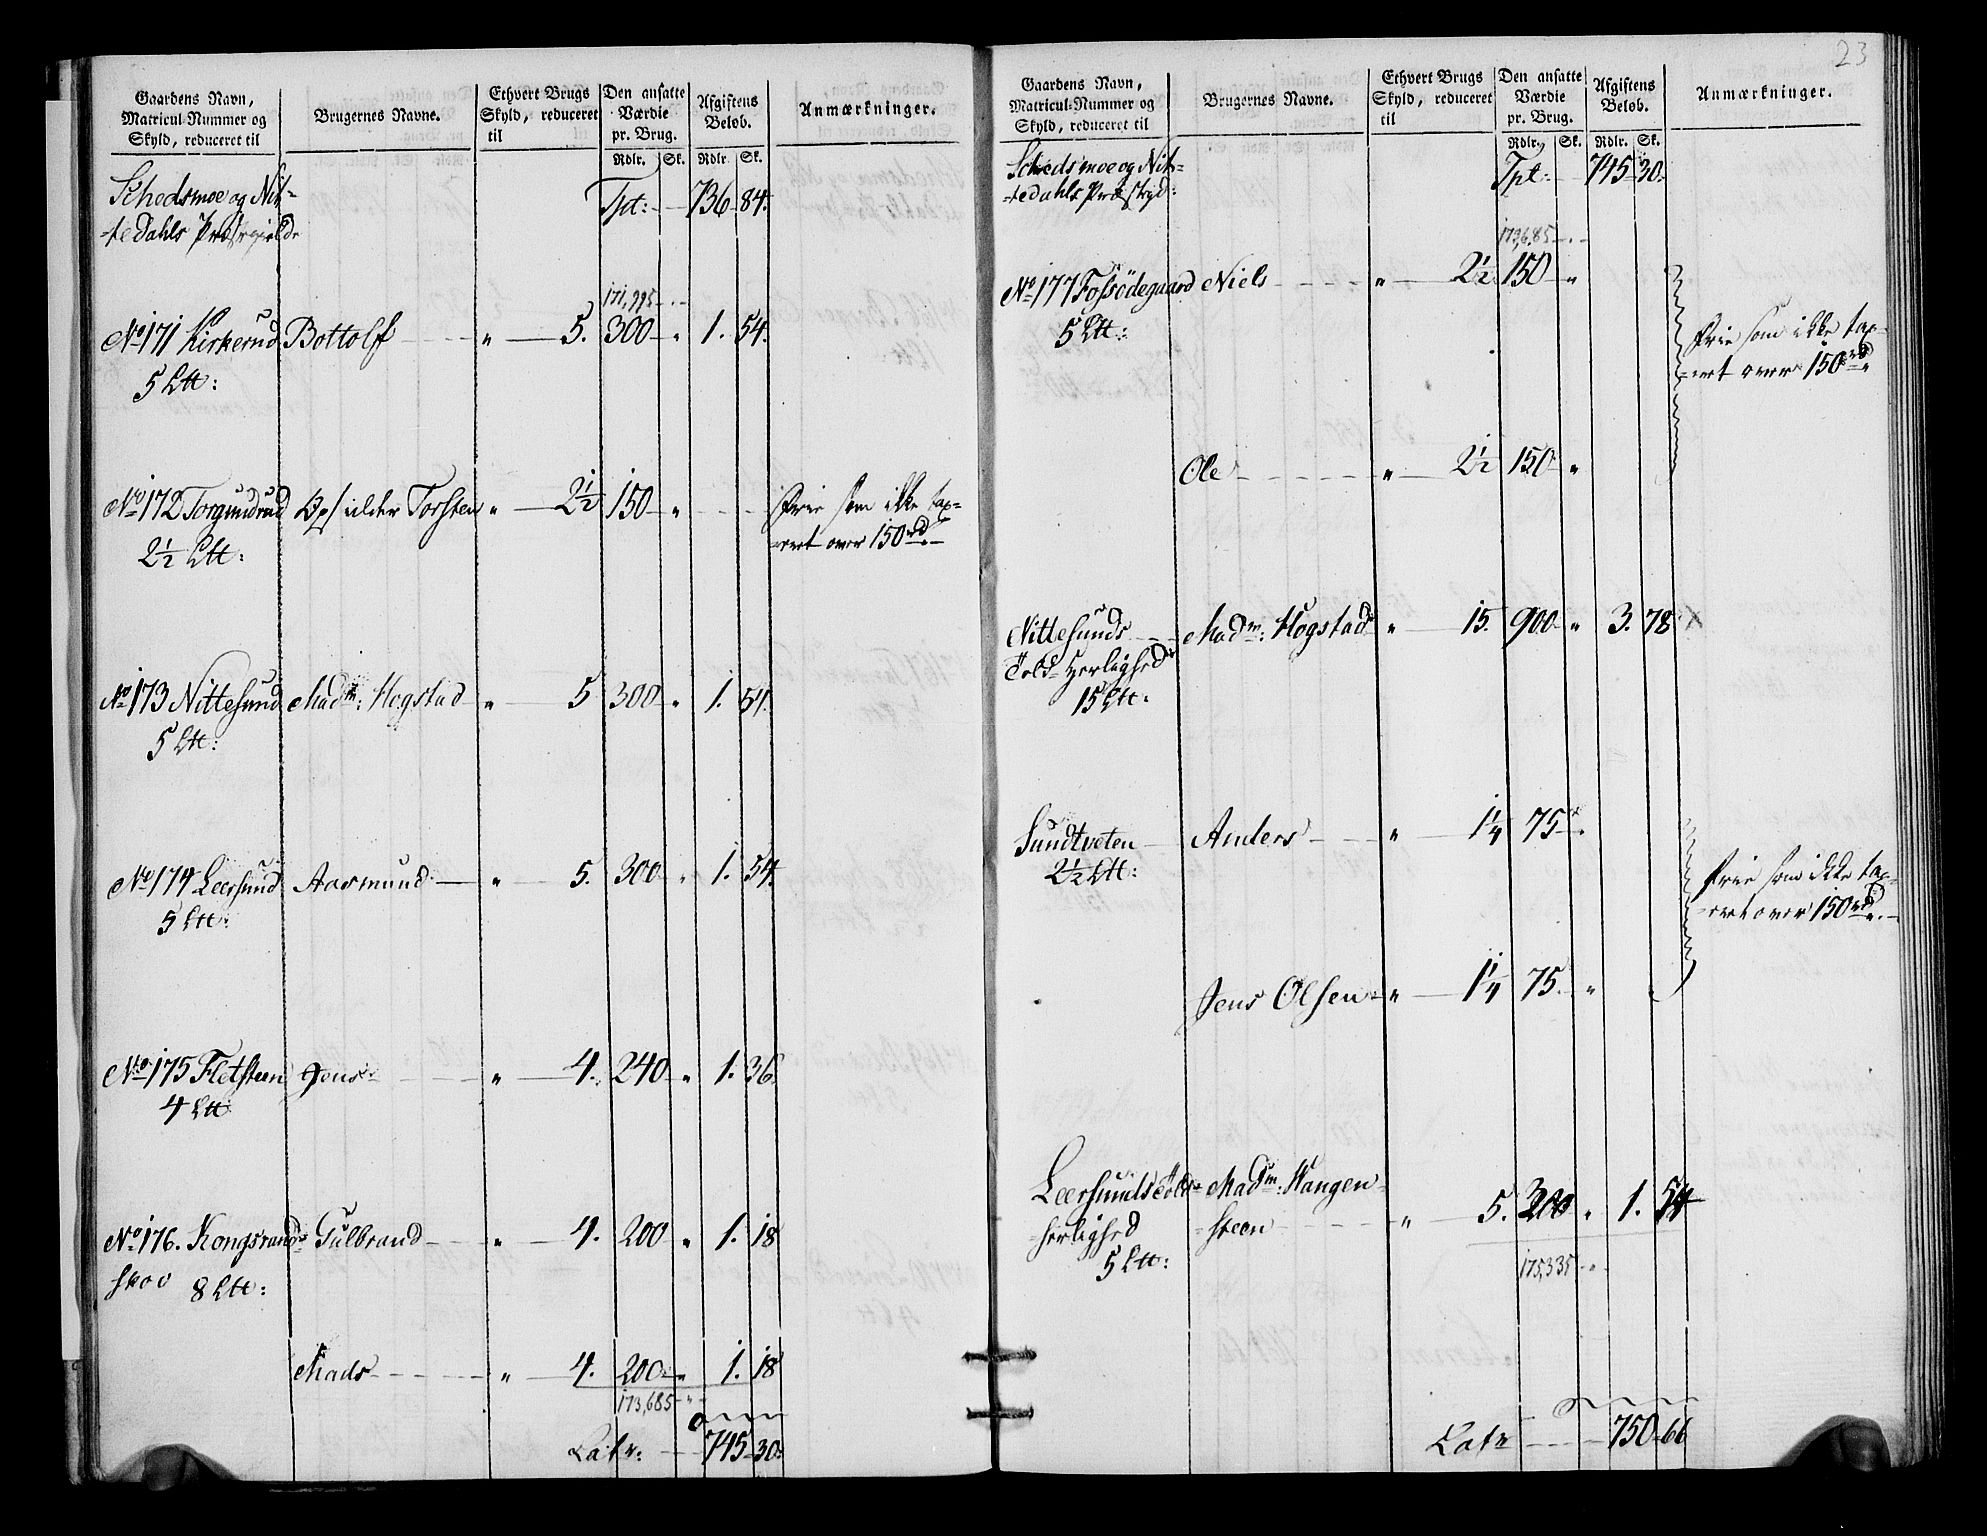 Gaardens Navn,
Matricul-Nummer og
Skyld, reduceret til
Brugernes Navne.
Ethvert Brugs
Skyld, reduceret
til
Den ansatte
Værdie
pr. Brug.
Rdlr. Sk.
Afgiftens
Beløb.
Rdlr. Sk.
Anmærkninger.
Schedsmoe og Nit-
-tedahls Præstegield
Tpt: 736 84.
171,995
No 171 Kirkerud Bottolf " 5. 300 " 1. 54.
5 Ltt:
No 172 Torgundrud Opsidder Torsten " 2½ 150 " Frie som ikke tax-
2½ Ltt: -eret over 150 rd.
No 173 Nittesund Madm: Hogstad " 5 300 " 1. 54.
5 Ltt:
No 174 Leersund Aasmund " 5. 300 " 1. 54.
5 Ltt:
No 175 Fletsteen Jens " 4. 240 " 1. 36.
4 Ltt:
No 176. Kongsrands- Gulbrand " 4. 200 " 1. 18
skov 8 Ltt:
Mads " 4. 200 " 1. 18
173,685
Latr: 745 30.
23
Gaardens Navn,
Matricul-Nummer og
Skyld, reduceret til
Brugernes Navne.
Ethvert Brugs
Skyld, reduceret
til
Den ansatte
Værdie
pr. Brug.
Rdlr. Sk.
Afgiftens
Beløb.
Rdlr. Sk.
Anmærkninger.
Schedsmoe og Nit-
-tedahls Præstgjd:
Tpt: 745 30.
173,685
No 177 Fossødegaard Niels " 2½ 150 "
5 Ltt:
Frie som ikke tax-
-eret over 150 rd.
Ole " 2½ 150 "
Nittesunds Madm: Hogstad " 15. 900 " 3. 78 X
Told-Herlighed
15 Ltt:
Sundtveten Anders " 1¼ 75 "
2½ Ltt:
Frie som ikke tax-
-eret over 150 rd.
Jens Olsen " 1¼ 75 "
Leersunds Told- Madm: Wangen-
-herlighed -steen " 5. 300 " 1. 54
5 Ltt:
175,335
Latr 750 66